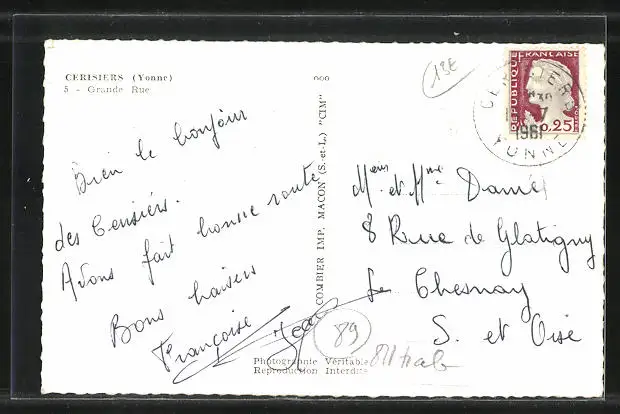 CERISIERS (Yonne)
5 - Grande Rue
Bien le bonjour
des Cerisiers.
Avons fait bonne route
Bons baisers
Françoise Jean
COMBIER IMP. MACON (S.-et-L.) "CIM"
Photographie Véritable
Reproduction Interdite
13E
REPUBLIQUE FRANÇAISE
0,25
CERISIERS
1961
YONNE
Meur et Mme Damé
8 Rue de Glatigny
Le Chesnay
S. et Oise
89